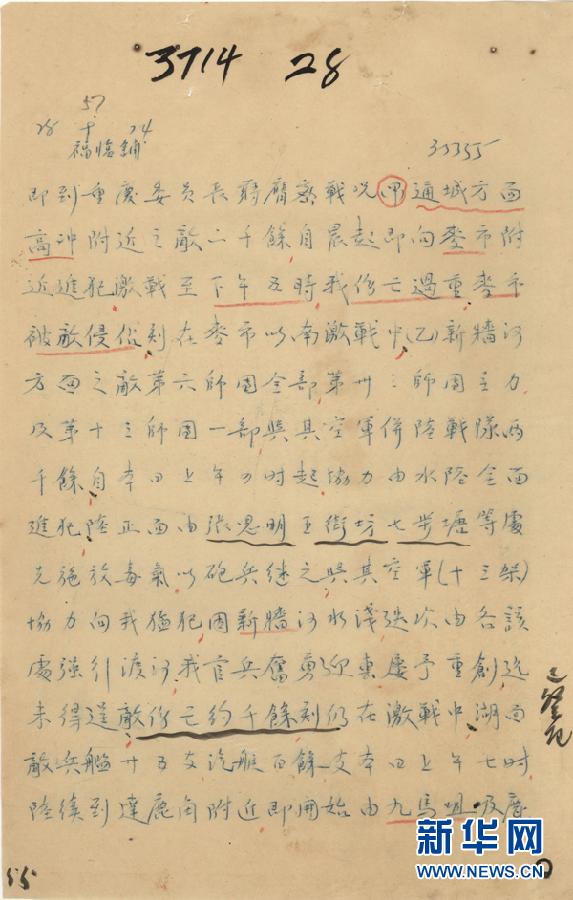 3714 28
57
28 十 24
福临鋪
33355
即到重慶委員長蔣膺密戰况(甲)通城方面
高冲附近之敵二千餘自晨起即向麥市附
近進犯激戰至下午五時我傷亡過重麥市
被敵侵佔刻在麥市以南激戰中(乙)新牆河
方面之敵第六師團全部第卅三師團主力
及第十三師團一部與其空軍併陸戰隊兩
千餘自本日上午 时起協力由水陸全面
進犯陸正面由 明王街坊七步塘等處
先施放毒氣以砲兵継之與其空軍(十三架)
協力向我猛犯因新牆河水淺迭次由各該
處強引渡河我官兵奮勇迎 屢予重創迄
未得逞敵傷亡約千餘刻仍在激戰中湖面
敵兵艦廿五支汽艇百餘支本日上午七时
陸續到達鹿角附近即開始由九馬咀
55
新华网
WWW.NEWS.CN